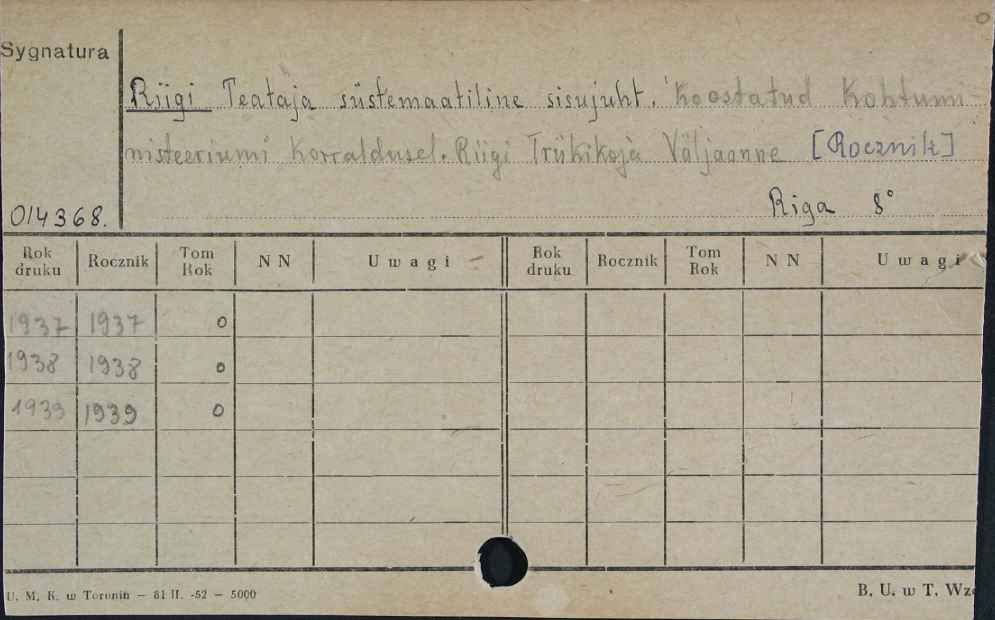 Sygnatura
Riigi Teataja süstemaatiline sisujuht. Koostatud Kohtumi
nisteeriumi Korraldusel. Riigi Trükikoja Väljaanne [Rocznik]
014368.
Riga 8°
Rok druku Rocznik Tom Rok NN Uwagi Rok druku Rocznik Tom Rok NN Uwagi
1937 1937 0
1938 1938 0
1939 1939 0
U. M. K. w Toruniu – 81 II. -52 – 5000
B. U. w T. Wzó